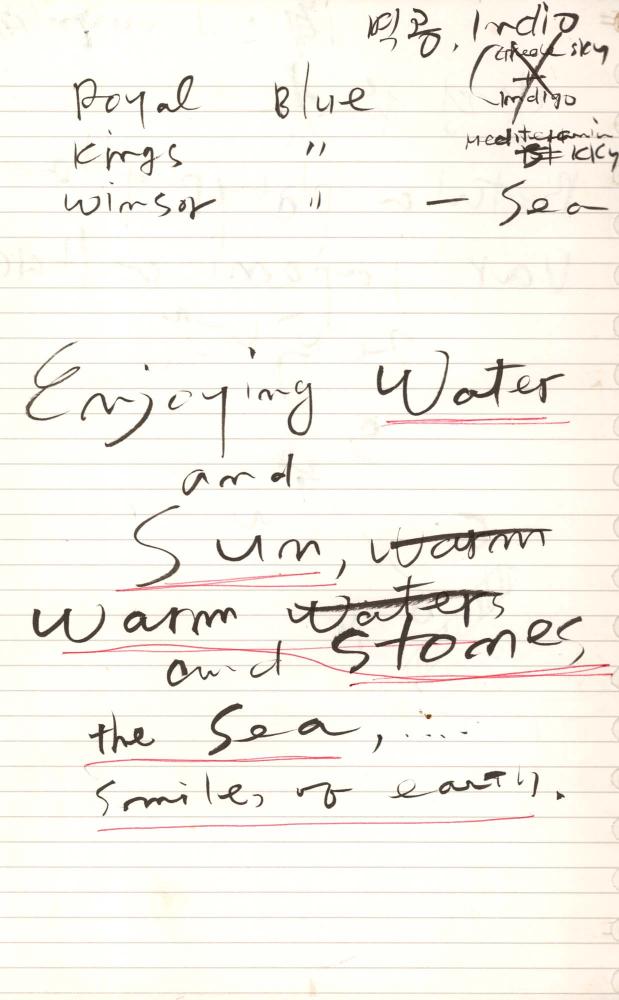 벽공, Indio
sky
+
Indigo
Royal Blue
Kings "
KKy
Winsor " — Sea
Enjoying Water
and
Sun, warm
warm waters
and Stones,
the Sea, .....
smiles of earth.